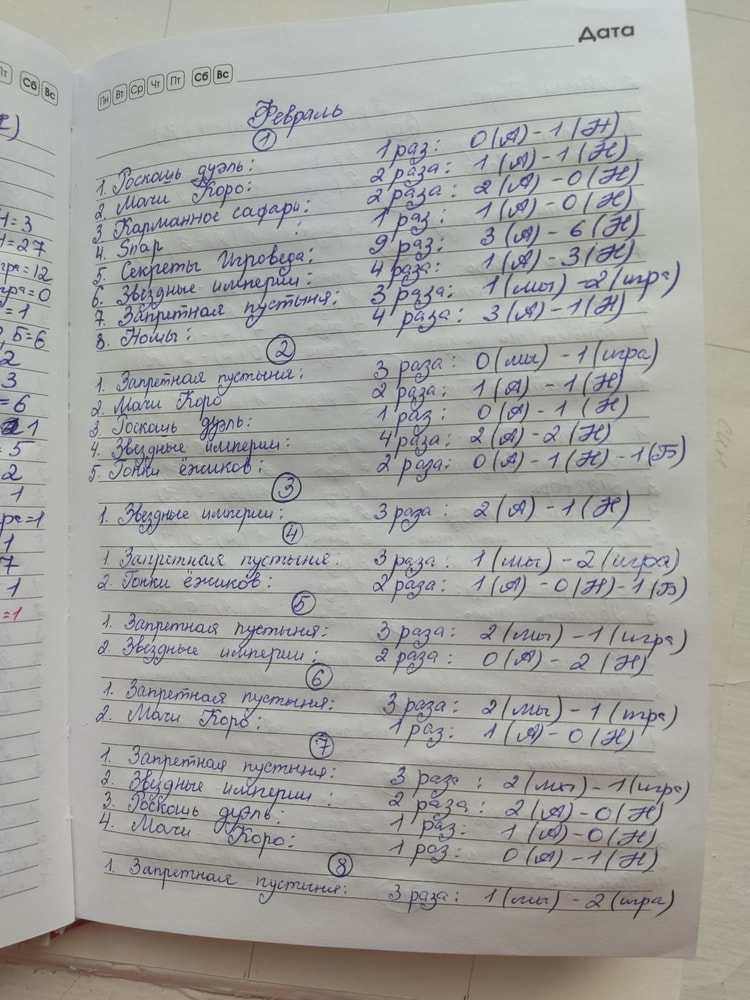 Дата
Пн Вт Ср Чт Пт Сб Вс
Февраль
1
1. Роскошь дуэль: 1 раз: 0 (А) - 1 (Н)
2. Мачи Коро: 2 раза: 1 (А) - 1 (Н)
3. Карманное сафари: 2 раза: 2 (А) - 0 (Н)
4. Snap : 1 раз: 1 (А) - 0 (Н)
5. Секреты Игроведа: 9 раз: 3 (А) - 6 (Н)
6. Звёздные империи: 4 раза: 1 (А) - 3 (Н)
7. Запретная пустыня: 3 раза: 1 (мы) - 2 (игра)
8. Номы: 4 раза: 3 (А) - 1 (Н)
2
1. Запретная пустыня: 3 раза: 0 (мы) - 1 (игра)
2. Мачи Коро 2 раза: 1 (А) - 1 (Н)
3. Роскошь дуэль: 1 раз: 0 (А) - 1 (Н)
4. Звёздные империи: 4 раза: 2 (А) - 2 (Н)
5. Гонки ёжиков: 2 раза: 0 (А) - 1 (Н) - 1 (Б)
3
1. Звездные империи: 3 раза: 2 (А) - 1 (Н)
4
1. Запретная пустыня: 3 раза: 1 (мы) - 2 (игра)
2. Гонки ёжиков: 2 раза: 1 (А) - 0 (Н) - 1 (Б)
5
1. Запретная пустыня: 3 раза: 2 (мы) - 1 (игра)
2. Звёздные империи: 2 раза: 0 (А) - 2 (Н)
6
1. Запретная пустыня: 3 раза: 2 (мы) - 1 (игра)
2. Мачи Коро: 1 раз: 1 (А) - 0 (Н)
7
1. Запретная пустыня: 3 раза: 2 (мы) - 1 (игра)
2. Звёздные империи: 2 раза: 2 (А) - 0 (Н)
3. Роскошь дуэль: 1 раз: 1 (А) - 0 (Н)
4. Мачи Коро: 1 раз: 0 (А) - 1 (Н)
8
1. Запретная пустыня: 3 раза: 1 (мы) - 2 (игра)